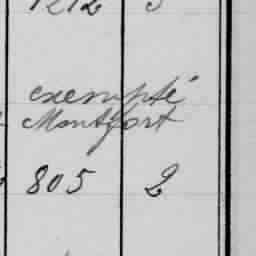 1212 3
exempté
Montfort
805 2